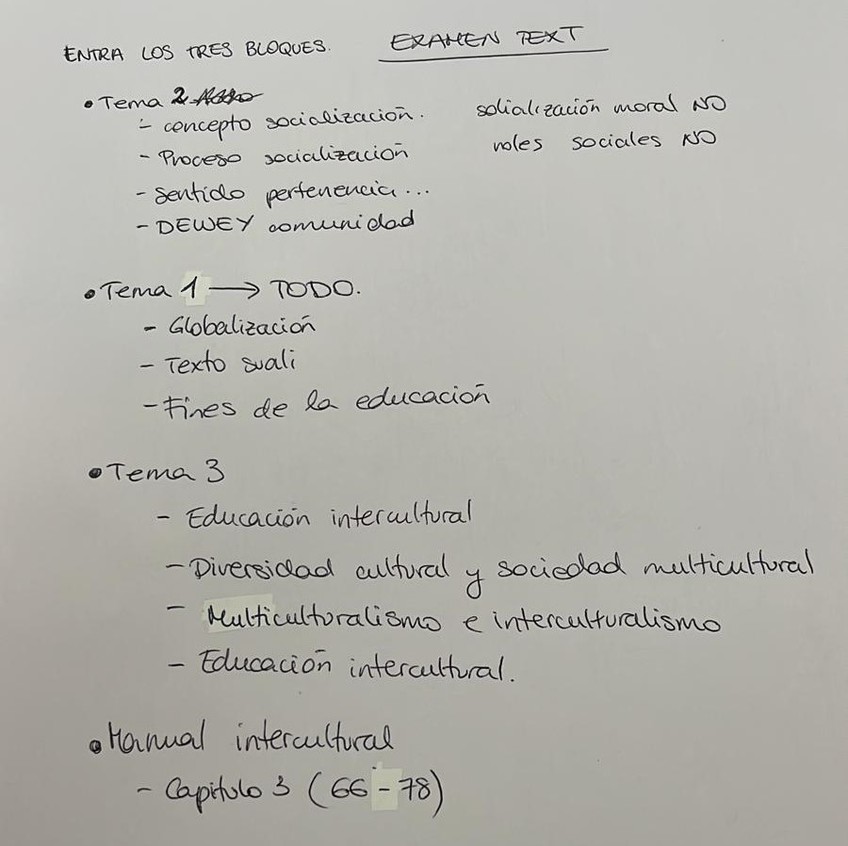 ENTRA LOS TRES BLOQUES. EXAMEN TEXT
• Tema 2
- concepto socialización. solialización moral NO
- Proceso socialización roles sociales NO
- Sentido pertenencia...
- DEWEY comunidad
• Tema 1 → TODO.
- Globalización
- Texto suali
- Fines de la educación
• Tema 3
- Educación intercultural
- Diversidad cultural y sociedad multicultural
- Multiculturalismo e interculturalismo
- Educación intercultural.
• Manual intercultural
- Capitulo 3 (66-78)